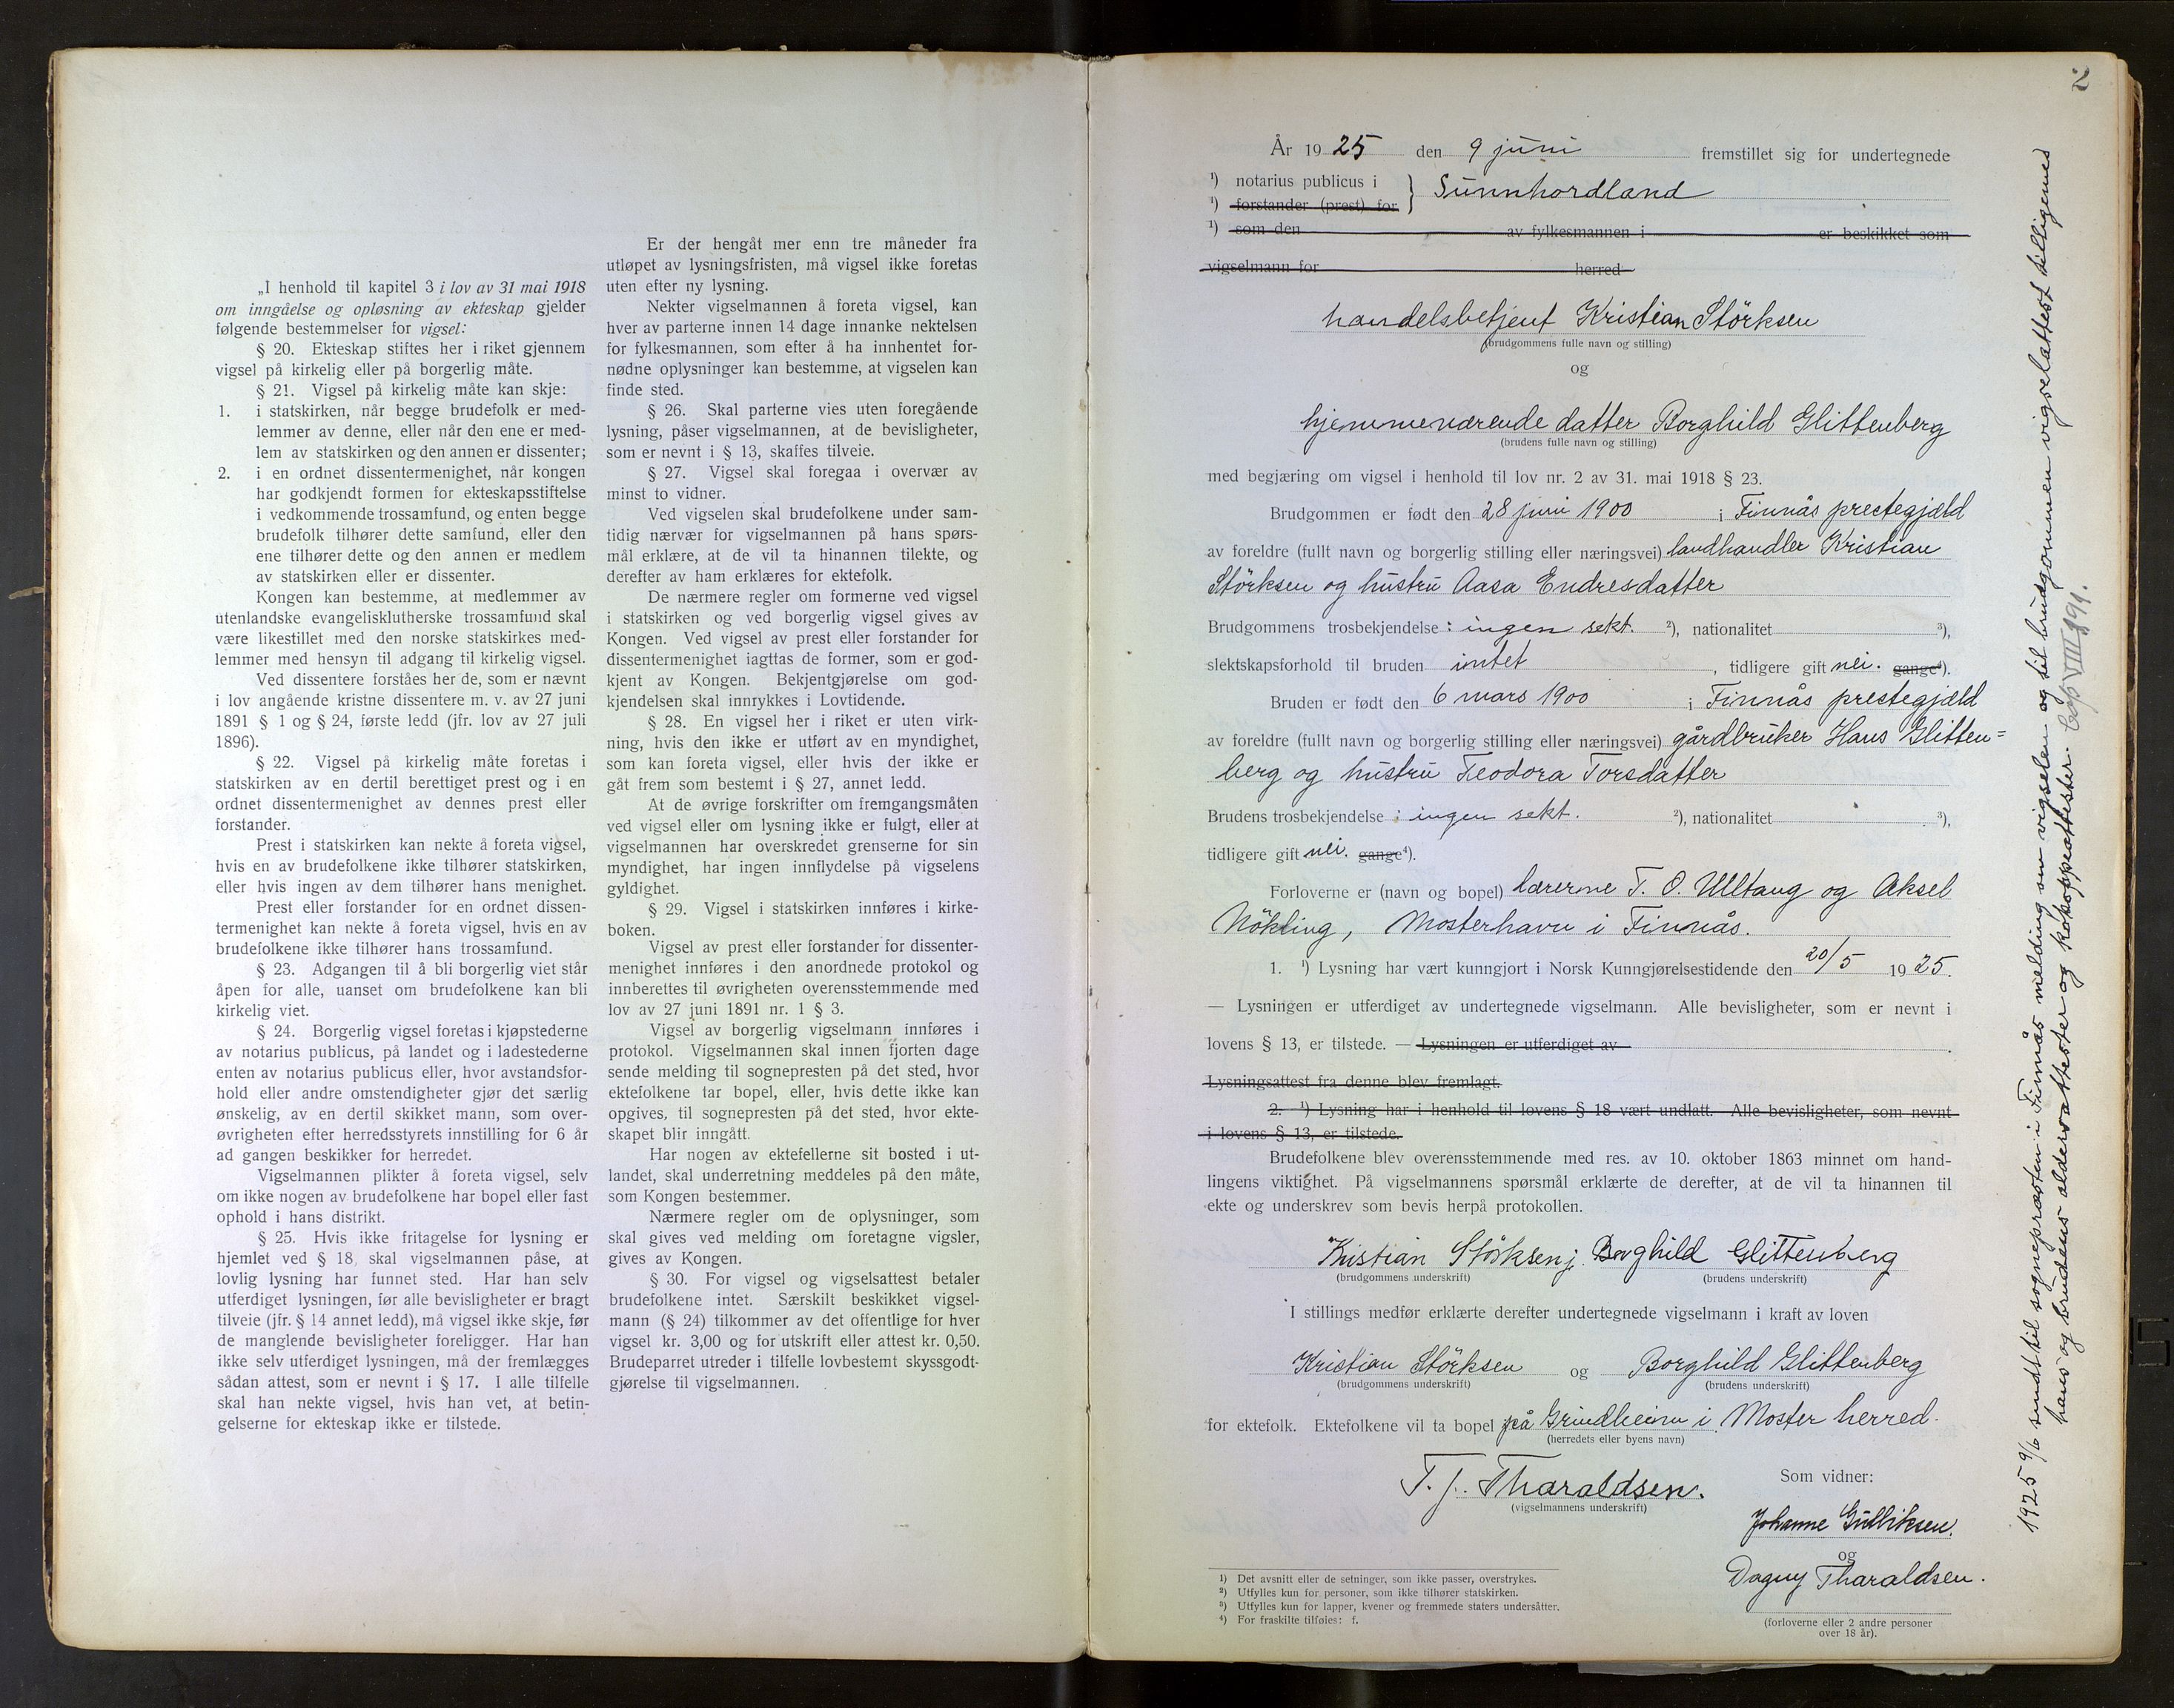 „I henhold til kapitel 3 i lov av 31 mai 1918
om inngåelse og opløsning av ekteskap gjelder
følgende bestemmelser for vigsel:
§ 20. Ekteskap stiftes her i riket gjennem
vigsel på kirkelig eller på borgerlig måte.
§ 21. Vigsel på kirkelig måte kan skje:
1. i statskirken, når begge brudefolk er med-
lemmer av denne, eller når den ene er med-
lem av statskirken og den annen er dissenter;
2. i en ordnet dissentermenighet, når kongen
har godkjendt formen for ekteskapsstiftelse
i vedkommende trossamfund, og enten begge
brudefolk tilhører dette samfund, eller den
ene tilhører dette og den annen er medlem
av statskirken eller er dissenter.
Kongen kan bestemme, at medlemmer av
utenlandske evangeliskluterske trossamfund skal
være likestillet med den norske statskirkes med-
lemmer med hensyn til adgang til kirkelig vigsel.
Ved dissentere forståes her de, som er nævnt
i lov angående kristne dissentere m. v. av 27 juni
1891 § 1 og § 24, første ledd (jfr. lov av 27 juli
1896).
§ 22. Vigsel på kirkelig måte foretas i
statskirken av en dertil berettiget prest og i en
ordnet dissentermenighet av dennes prest eller
forstander.
Prest i statskirken kan nekte å foreta vigsel,
hvis en av brudefolkene ikke tilhører statskirken,
eller hvis ingen av dem tilhører hans menighet.
Prest eller forstander for en ordnet dissen-
termenighet kan nekte å foreta vigsel, hvis en av
brudefolkene ikke tilhører hans trossamfund.
§ 23. Adgangen til å bli borgerlig viet står
åpen for alle, uanset om brudefolkene kan bli
kirkelig viet.
§ 24. Borgerlig vigsel foretas i kjøpstederne
av notarius publicus, på landet og i ladestederne
enten av notarius publicus eller, hvor avstandsfor-
hold eller andre omstendigheter gjør det særlig
ønskelig, av en dertil skikket mann, som over-
øvrigheten efter herredsstyrets innstilling for 6 år
ad gangen beskikker for herredet.
Vigselmannen plikter å foreta vigsel, selv
om ikke nogen av brudefolkene har bopel eller fast
ophold i hans distrikt.
§ 25. Hvis ikke fritagelse for lysning er
hjemlet ved § 18, skal vigselmannen påse, at
lovlig lysning har funnet sted. Har han selv
utferdiget lysningen, før alle bevisligheter er bragt
tilveie (jfr. § 14 annet ledd), må vigsel ikke skje, før
de manglende bevisligheter foreligger. Har han
ikke selv utferdiget lysningen, må der fremlægges
sådan attest, som er nevnt i § 17. I alle tilfelle
skal han nekte vigsel, hvis han vet, at betin-
gelserne for ekteskap ikke er tilstede.
Er der hengåt mer enn tre måneder fra
utløpet av lysningsfristen, må vigsel ikke foretas
uten efter ny lysning.
Nekter vigselmannen å foreta vigsel, kan
hver av parterne innen 14 dage innanke nektelsen
for fylkesmannen, som efter å ha innhentet for-
nødne oplysninger kan bestemme, at vigselen kan
finde sted.
§ 26. Skal parterne vies uten foregående
lysning, påser vigselmannen, at de bevisligheter,
som er nevnt i § 13, skaffes tilveie.
§ 27. Vigsel skal foregaa i overvær av
minst to vidner.
Ved vigselen skal brudefolkene under sam-
tidig nærvær for vigselmannen på hans spørs-
mål erklære, at de vil ta hinannen tilekte, og
derefter av ham erklæres for ektefolk.
De nærmere regler om formerne ved vigsel
i statskirken og ved borgerlig vigsel gives av
Kongen. Ved vigsel av prest eller forstander for
dissentermenighet iagttas de former, som er god-
kjent av Kongen. Bekjentgjørelse om god-
kjendelsen skal innrykkes i Lovtidende.
§ 28. En vigsel her i riket er uten virk-
ning, hvis den ikke er utført av en myndighet,
som kan foreta vigsel, eller hvis der ikke er
gåt frem som bestemt i § 27, annet ledd.
At de øvrige forskrifter om fremgangsmåten
ved vigsel eller om lysning ikke er fulgt, eller at
vigselmannen har overskredet grenserne for sin
myndighet, har ingen innflydelse på vigselens
gyldighet.
§ 29. Vigsel i statskirken innføres i kirke-
boken.
Vigsel av prest eller forstander for dissenter-
menighet innføres i den anordnede protokol og
innberettes til øvrigheten overensstemmende med
lov av 27 juni 1891 nr. 1 § 3.
Vigsel av borgerlig vigselmann innføres i
protokol. Vigselmannen skal innen fjorten dage
sende melding til sognepresten på det sted, hvor
ektefolkene tar bopel, eller, hvis dette ikke kan
opgives, til sognepresten på det sted, hvor ekte-
skapet blir inngått.
Har nogen av ektefellerne sit bosted i ut-
landet, skal underretning meddeles på den måte,
som Kongen bestemmer.
Nærmere regler om de oplysninger, som
skal gives ved melding om foretagne vigsler,
gives av Kongen.
§ 30. For vigsel og vigselsattest betaler
brudefolkene intet. Særskilt beskikket vigsel-
mann (§ 24) tilkommer av det offentlige for hver
vigsel kr. 3,00 og for utskrift eller attest kr. 0,50.
Brudeparret utreder i tilfelle lovbestemt skyssgodt-
gjørelse til vigselmannen.
2
År 1925 den 9 juni fremstillet sig for undertegnede
¹) notarius publicus i } Sunnhordland
¹) forstander (prest) for
¹) som den av fylkesmannen i er beskikket som
vigselmann for herred
handelsbetjent Kristian Störksen
(brudgommens fulle navn og stilling)
og
hjemmeværende datter Borghild Glittenberg
(brudens fulle navn og stilling)
med begjæring om vigsel i henhold til lov nr. 2 av 31. mai 1918 § 23.
Brudgommen er født den 28 juni 1900 i Finnås prestegjæld
av foreldre (fullt navn og borgerlig stilling eller næringsvei) landhandler Kristian
Störksen og hustru Aasa Endresdatter
Brudgommens trosbekjendelse : ingen sekt. ²), nationalitet ³),
slektskapsforhold til bruden intet , tidligere gift nei. gange⁴).
Bruden er født den 6 mars 1900 i Finnås prestegjæld
av foreldre (fullt navn og borgerlig stilling eller næringsvei) gårdbruker Hans Glitten=
berg og hustru Teodora Torsdatter
Brudens trosbekjendelse : ingen sekt. ²), nationalitet ³),
tidligere gift nei. gange⁴).
Forloverne er (navn og bopel) lærerne T. O. Ulltang og Aksel
Nökling, Mosterhavn i Finnås.
1. ¹) Lysning har vært kunngjort i Norsk Kunngjørelsestidende den 20/5 1925.
— Lysningen er utferdiget av undertegnede vigselmann. Alle bevisligheter, som er nevnt i
lovens § 13, er tilstede. — Lysningen er utferdiget av
Lysningsattest fra denne blev fremlagt.
2. ¹) Lysning har i henhold til lovens § 18 vært undlatt. Alle bevisligheter, som nevnt
i lovens § 13, er tilstede.
Brudefolkene blev overensstemmende med res. av 10. oktober 1863 minnet om hand-
lingens viktighet. På vigselmannens spørsmål erklærte de derefter, at de vil ta hinannen til
ekte og underskrev som bevis herpå protokollen.
Kristian Störksen j. Borghild Glittenberg
(brudgommens underskrift) (brudens underskrift)
I stillings medfør erklærte derefter undertegnede vigselmann i kraft av loven
Kristian Störksen og Borghild Glittenberg
(brudgommens underskrift) (brudens underskrift)
for ektefolk. Ektefolkene vil ta bopel på Grindheim i Moster herred.
(herredets eller byens navn)
T. J. Tharaldsen.
(vigselmannens underskrift)
Som vidner:
Johanne Gulliksen.
og
Dagny Tharaldsen.
(forloverne eller 2 andre personer
over 18 år).
¹) Det avsnitt eller de setninger, som ikke passer, overstrykes.
²) Utfylles kun for personer, som ikke tilhører statskirken.
³) Utfylles kun for lapper, kvener og fremmede staters undersåtter.
⁴) For fraskilte tilføies: f.
1925 9/6 sendt til sognepresten i Finnås melding om vigselen og til brudgommen vigselattest tilligemed
hans og brudens aldersattester og koppeattester.